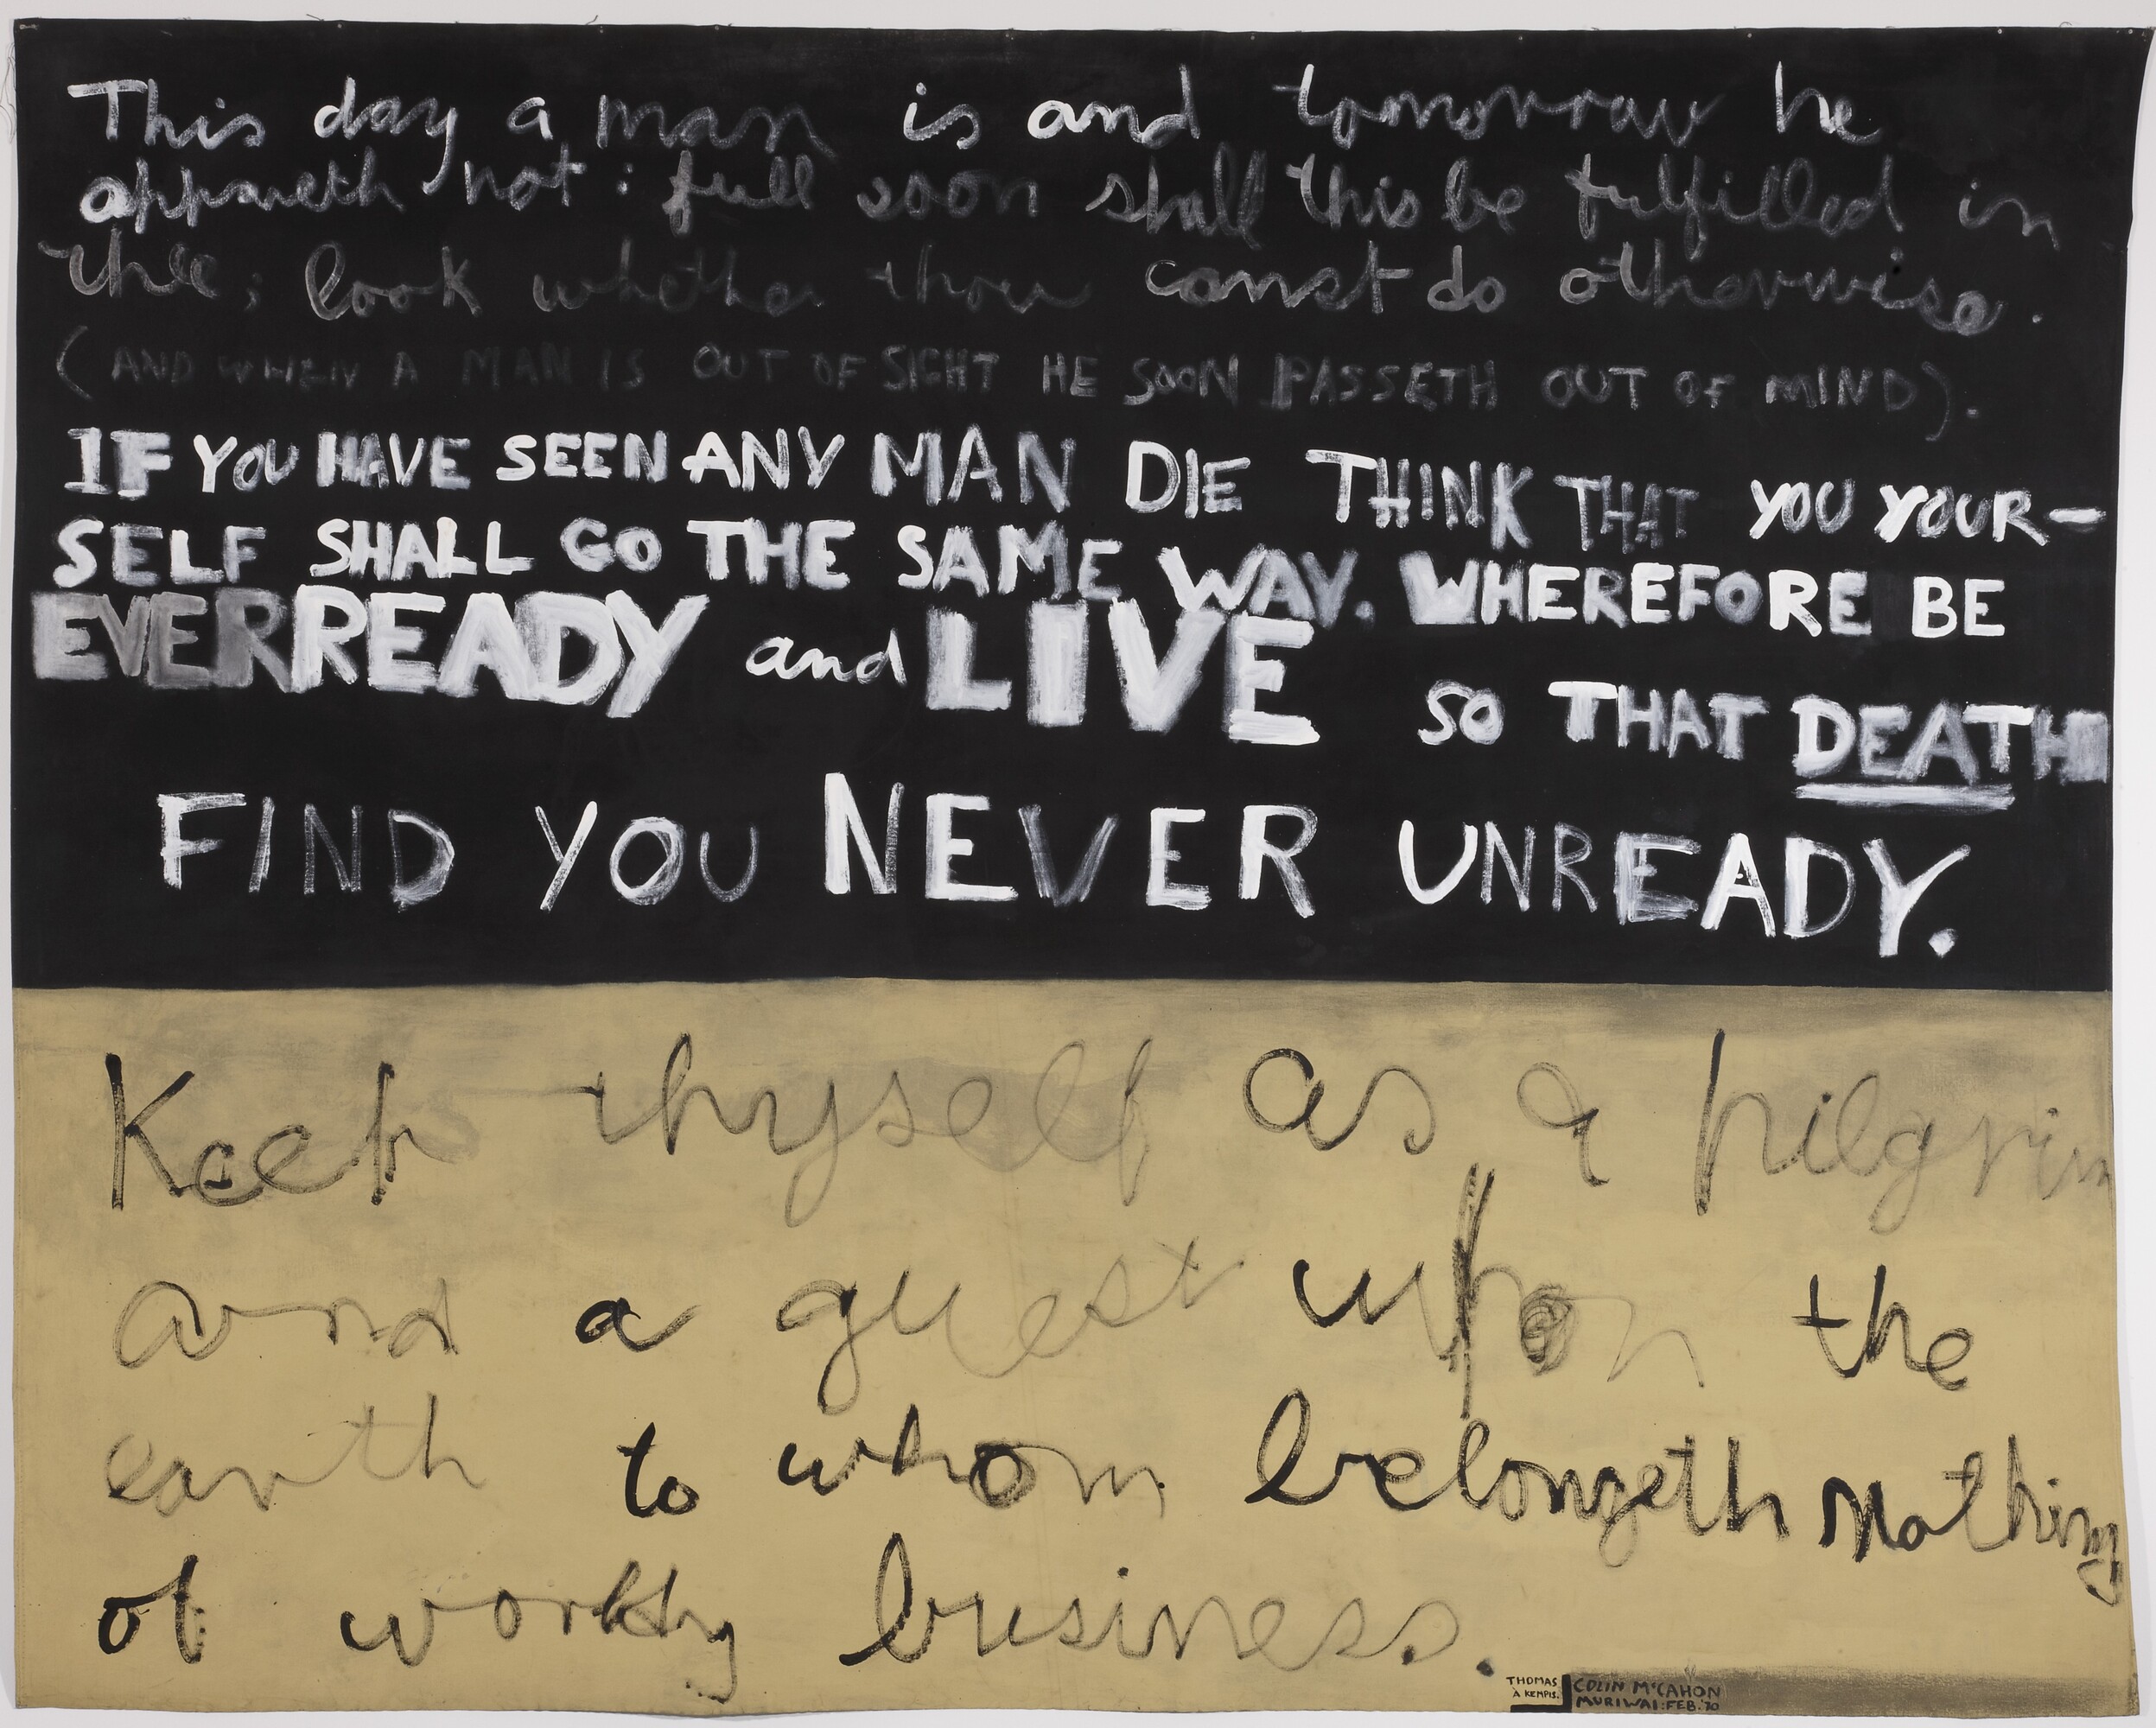 This day a man is and tomorrow he
appareth not: full soon shall this be fulfilled in
thee; look whether thou canst do otherwise.
(AND WHEN A MAN IS OUT OF SIGHT HE SOON PASSETH OUT OF MIND).
IF YOU HAVE SEEN ANY MAN DIE THINK THAT YOU YOUR-
SELF SHALL GO THE SAME WAY. WHEREFORE BE
EVERREADY and LIVE SO THAT DEATH
FIND YOU NEVER UNREADY.
Keep thyself as a pilgrim
and a guest upon the
earth to whom belongeth nothing
of workly business.
THOMAS
À KEMPIS.
COLIN McCAHON
MURIWAI: FEB. '70